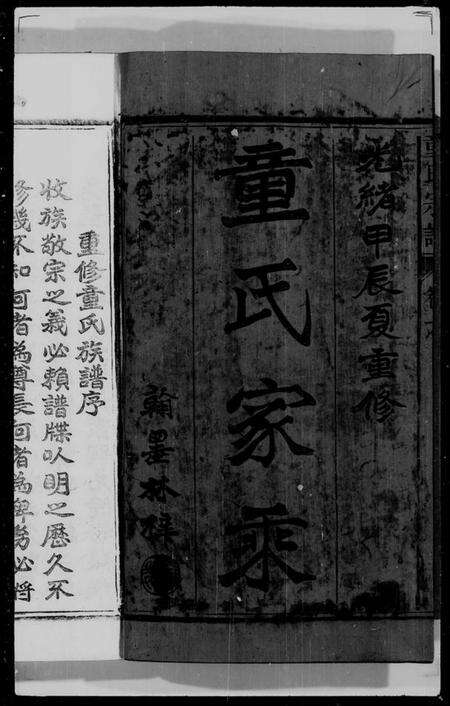 光緒甲辰夏重修
童氏家乘
翰墨林
重修童氏族譜序
收族敬宗之義必賴譜牒以明之歷久不
修幾不知何者為尊長何者為卑勞必將